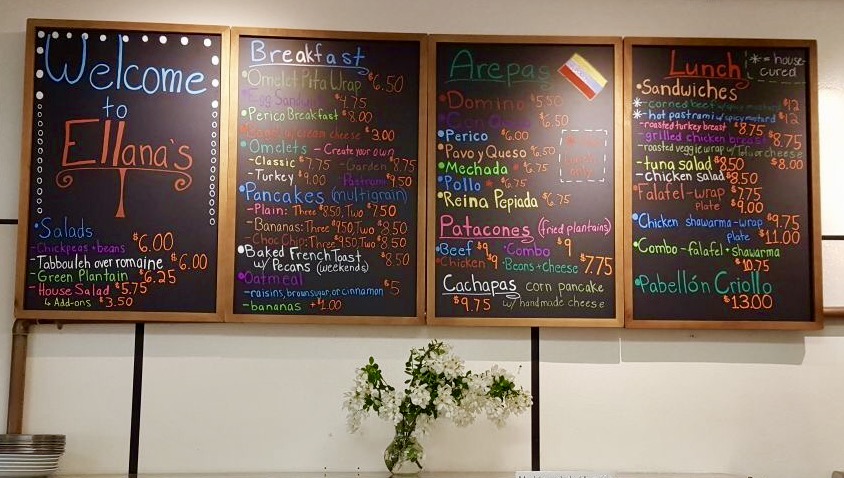 Welcome
to
Ellana's
Salads
-Chickpeas + beans $6.00
-Tabbouleh over romaine $6.00
-Green Plantain $6.25
-House Salad $5.75
4 Add-ons $3.50
Breakfast
Omelet Pita Wrap $6.50
Egg Sandwich $4.75
Perico Breakfast $8.00
cream cheese $3.00
Omelets - Create your own
-Classic $7.75 -Garden $8.75
-Turkey $9.00 -Pastrami $9.50
Pancakes (multigrain)
-Plain: Three $8.50, Two $7.50
-Bananas: Three $9.50, Two $8.50
-Choc Chip: Three $9.50, Two $8.50
Baked French Toast
w/ Pecans (weekends) $8.50
Oatmeal
-raisins, brown sugar, or cinnamon $5
-bananas +$1.00
Arepas
Domino $5.50
Con Queso $6.50
Perico $6.00
Pavo y Queso $6.50
Mechada $6.75
Pollo $6.75
Reina Pepiada $6.75
Patacones (fried plantains)
Beef $9 Combo $9
Chicken $9 -Beans + Cheese $7.75
Cachapas corn pancake
$9.75 w/ handmade cheese
Lunch
* = house-
cured
Sandwiches
*-corned beef w/ spicy mustard $12
*-hot pastrami w/ spicy mustard $12
-roasted turkey breast $8.75
-grilled chicken breast $8.75
roasted veggie wrap w/ Tofu or cheese $8.00
-tuna salad $8.50
-chicken salad $8.50
Falafel-wrap $7.75
plate $9.00
Chicken shawarma-wrap $9.75
plate $11.00
Combo-falafel + shawarma
$10.75
Pabellón Criollo
$13.00